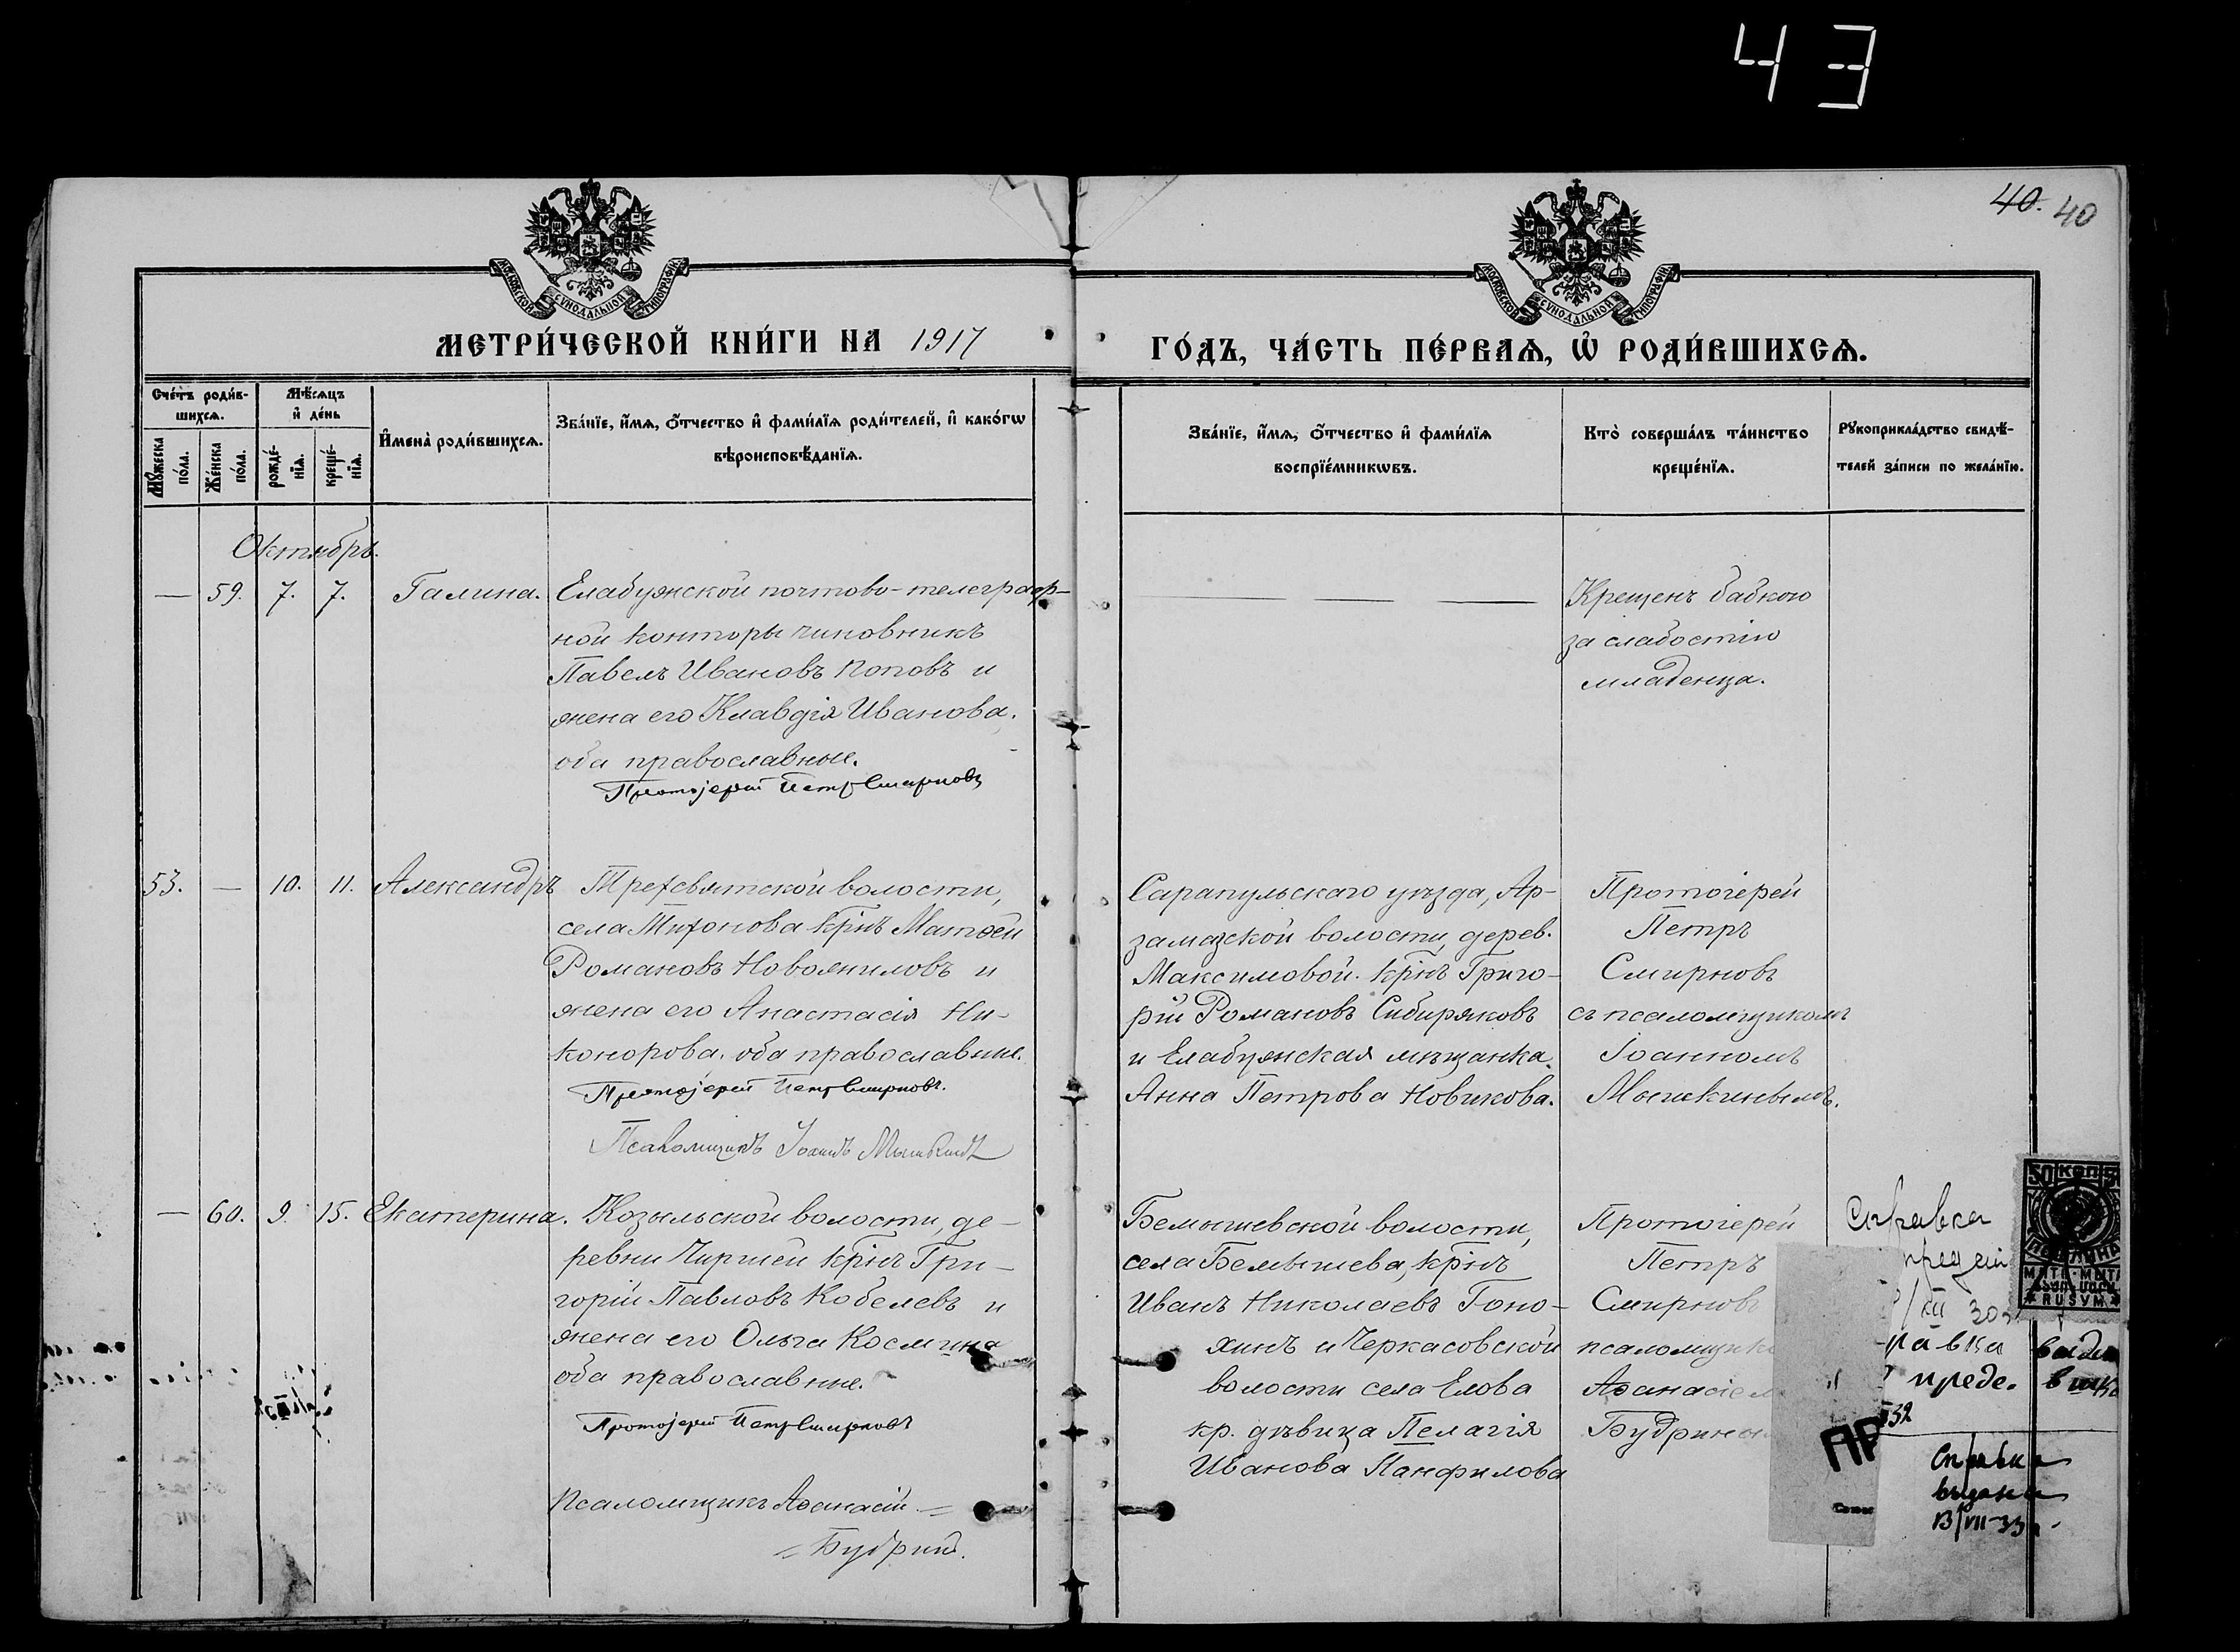 43
40. 40
МОСКОВСКОЙ СѴНОДАЛЬНОЙ ТИПОГРАФІИ
МОСКОВСКОЙ СѴНОДАЛЬНОЙ ТИПОГРАФІИ
МЕТРИ́ЧЕСКОЙ КНИ́ГИ НА 1917
ГО́ДЪ, ЧА́СТЬ ПЕ́РВАѦ, Ѡ҆ РОДИ́ВШИХСѦ.
Сче́тъ роди́в-
шихсѧ.
Мꙋ́жеска по́ла.
Же́нска по́ла.
Мѣ́сѧцъ
и҆ де́нь
рожде́-
нїѧ.
креще́-
нїѧ.
И҆мена̀ роди́вшихсѧ.
Зва́нїе, и҆́мѧ, ѻ҆́тчество и҆ фами́лїѧ роди́телей, и҆ како́гѡ
вѣроисповѣ́данїѧ.
Зва́нїе, и҆́мѧ, ѻ҆́тчество и҆ фами́лїѧ
воспрїе́мникѡвъ.
Кто̀ соверша́лъ та́инство
креще́нїѧ.
Рꙋкоприкла́дство свидѣ́-
телей за́писи по жела́нїю.
Октябрь.
— 59. 7. 7. Галина.
Елабужской почтово-телеграф-
ной конторы чиновникъ
Павелъ Ивановъ Поповъ и
жена его Клавдія Иванова,
оба православные.
Протоіерей Петръ Смирновъ
— — —
Крещенъ бабкою
за слабостію
младенца.
53. — 10. 11. Александръ
Трехсвятской волости,
села Тихонова крнъ Матѳей
Романовъ Новожиловъ и
жена его Анастасія Ни-
конорова. оба православные.
Протоіерей Петръ Смирновъ.
Псаломщикъ Іоаннъ Мышкинъ
Сарапульскаго уѣзда, Ар-
замазской волости, дерев.
Максимовой. крнъ Григо-
рій Романовъ Сибиряковъ
и Елабужская мѣщанка
Анна Петрова Новикова.
Протоіерей
Петръ
Смирновъ
съ псаломщикомъ
Іоанномъ
Мышкинымъ.
— 60. 9. 15. Екатерина.
Козыльской волости, де-
ревни Чиршей крнъ Гри-
горій Павловъ Кобелевъ и
жена его Ольга Космина
оба православные.
Протоіерей Петръ Смирновъ
Псаломщикъ Аѳанасій
Будринъ.
Бемышевской волости,
села Бемышева, крнъ
Иванъ Николаевъ Гоно-
хинъ и Черкасовской
волости села Елова
кр. дѣвица Пелагія
Иванова Панфилова
Протоіерей
Петръ
Смирновъ
псаломщик
Аѳанасіем
Будрины
Справка
XII 30
50 КОП
RUSUM
равка
преде.
32
ПР
Справка
выдана
13/VII-33